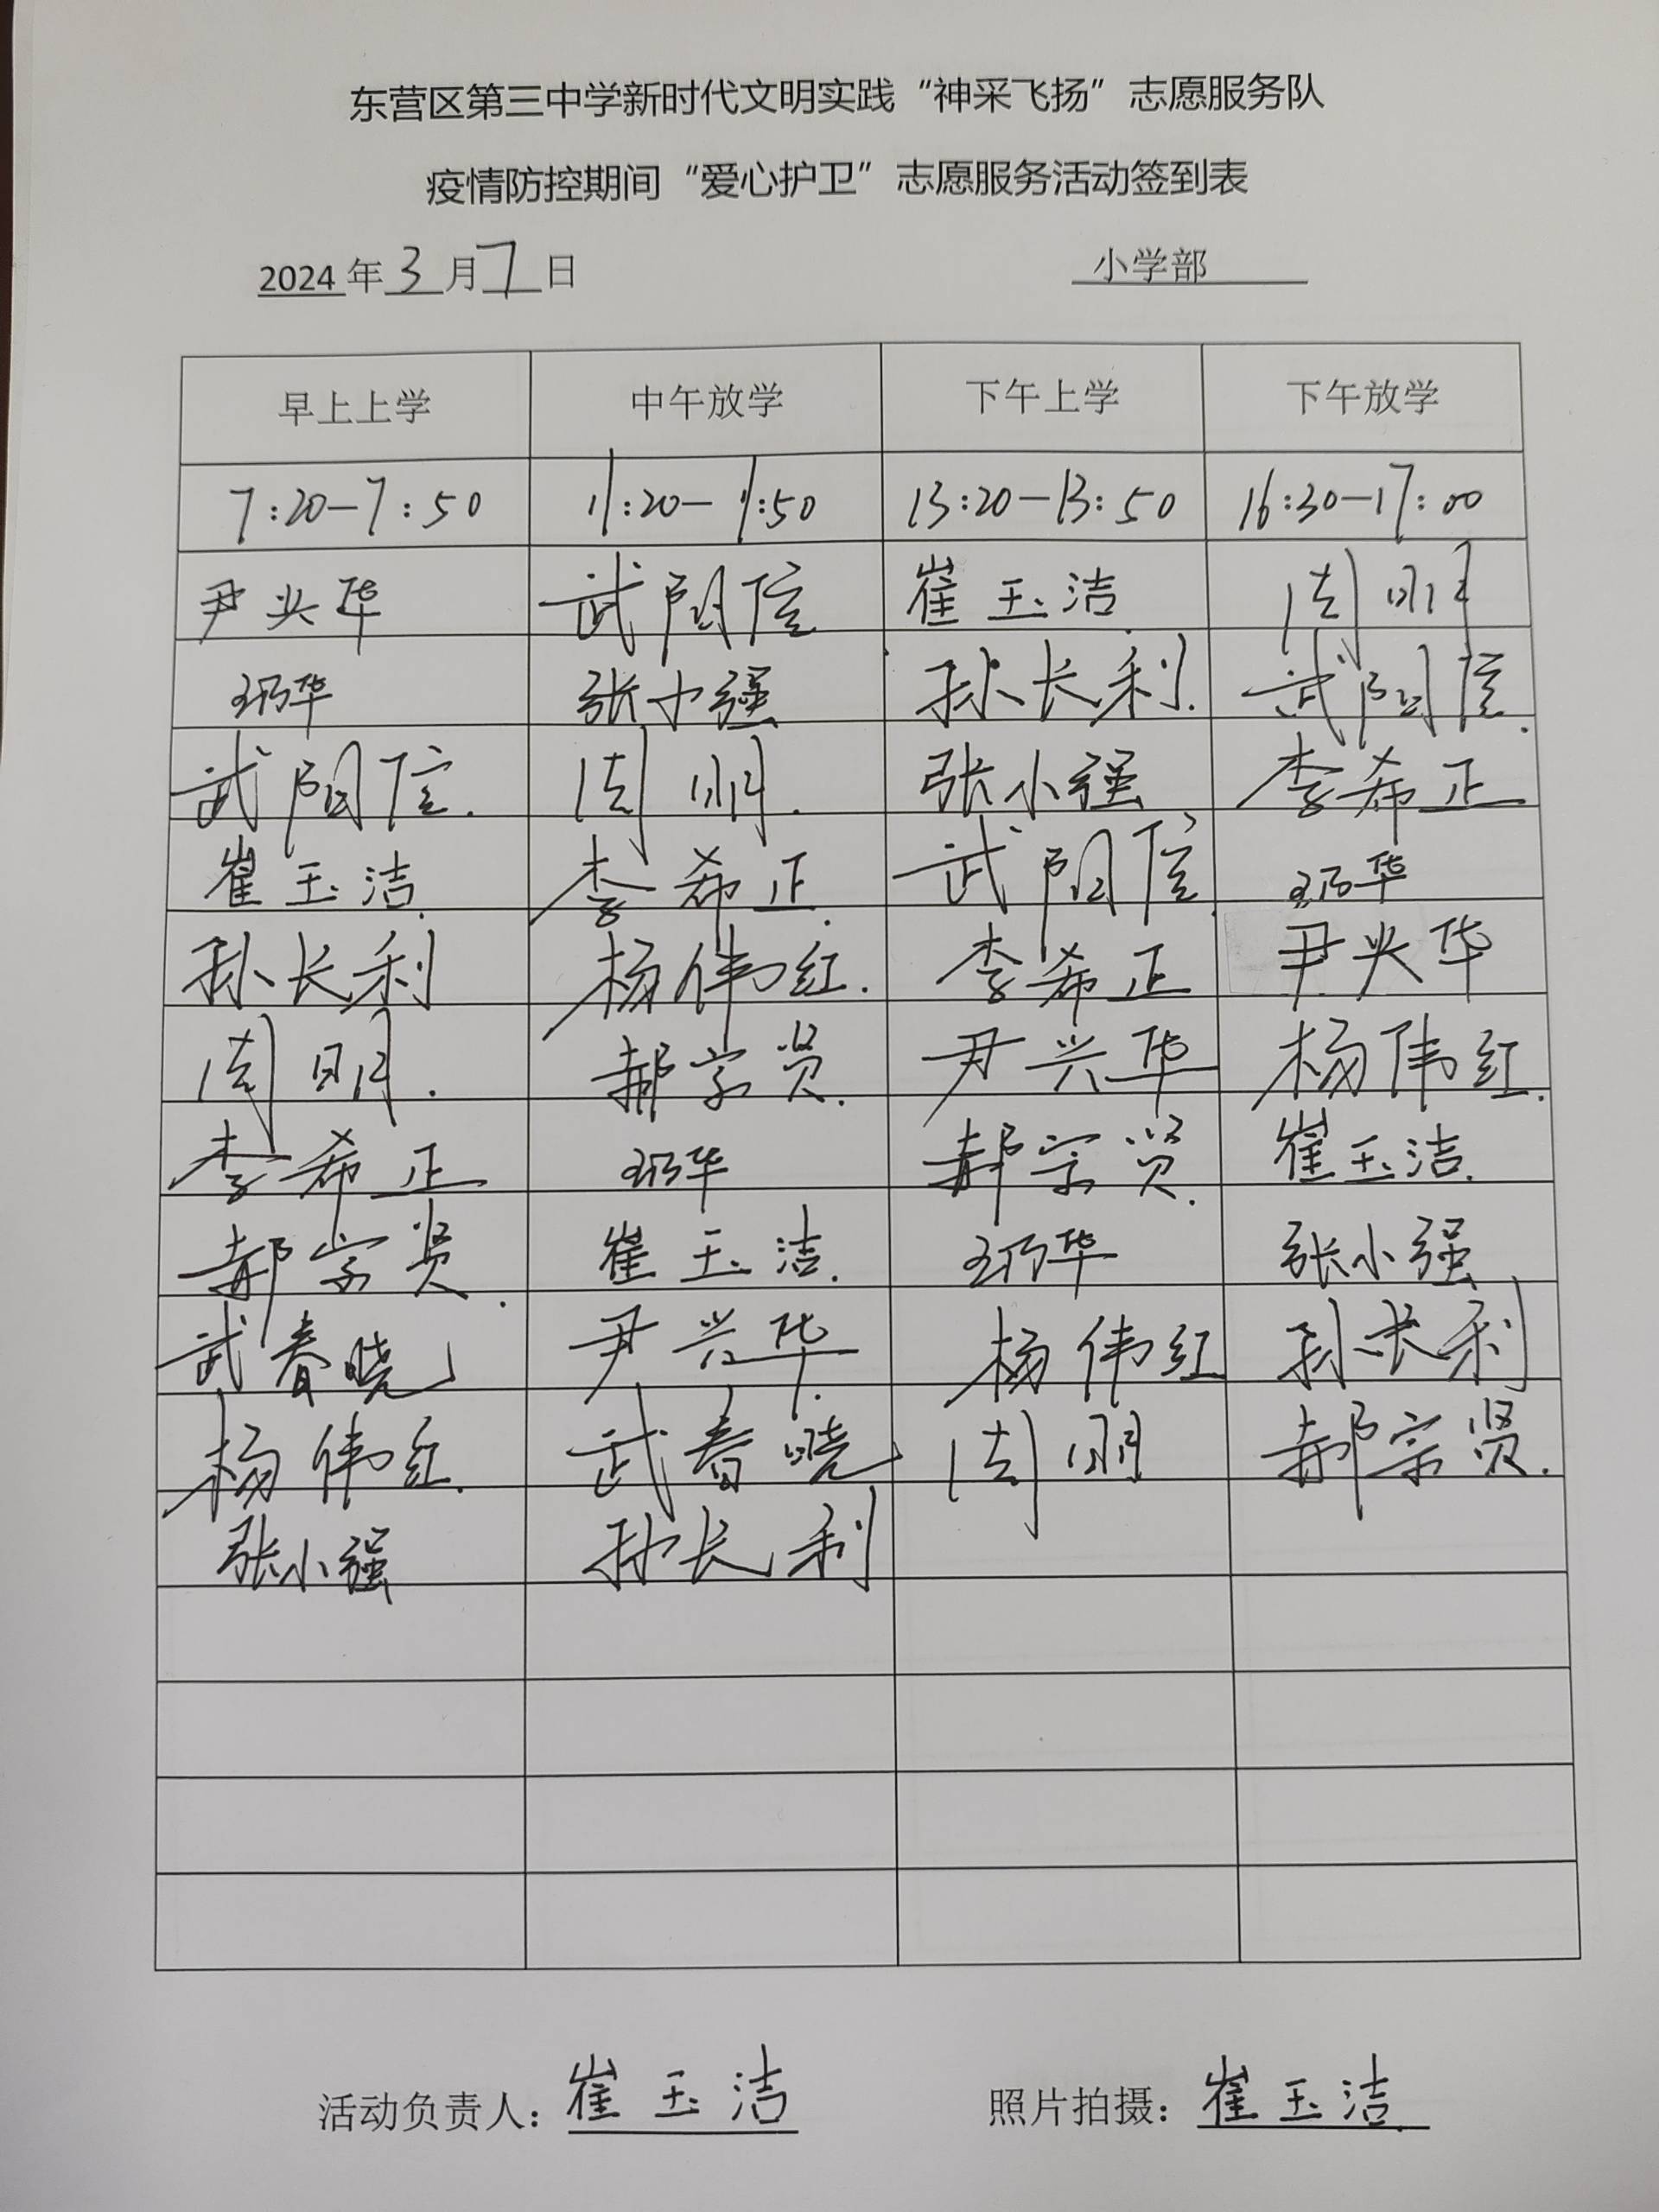 东营区第三中学新时代文明实践“神采飞扬”志愿服务队
疫情防控期间“爱心护卫”志愿服务活动签到表
2024年3月7日 小学部
早上上学 中午放学 下午上学 下午放学
7:20-7:50 11:20-11:50 13:20-13:50 16:30-17:00
尹兴华 武阳信 崔玉洁 周明
华 张小强 孙长利 武阳信
武阳信 周明 张小强 李希正
崔玉洁 李希正 武阳信 华
孙长利 杨伟红 李希正 尹兴华
周明 郝宗贤 尹兴华 杨伟红
李希正 华 郝宗贤 崔玉洁
郝宗贤 崔玉洁 华 张小强
武春晓 尹兴华 杨伟红 孙长利
杨伟红 武春晓 周明 郝宗贤
张小强 孙长利
活动负责人：崔玉洁 照片拍摄：崔玉洁